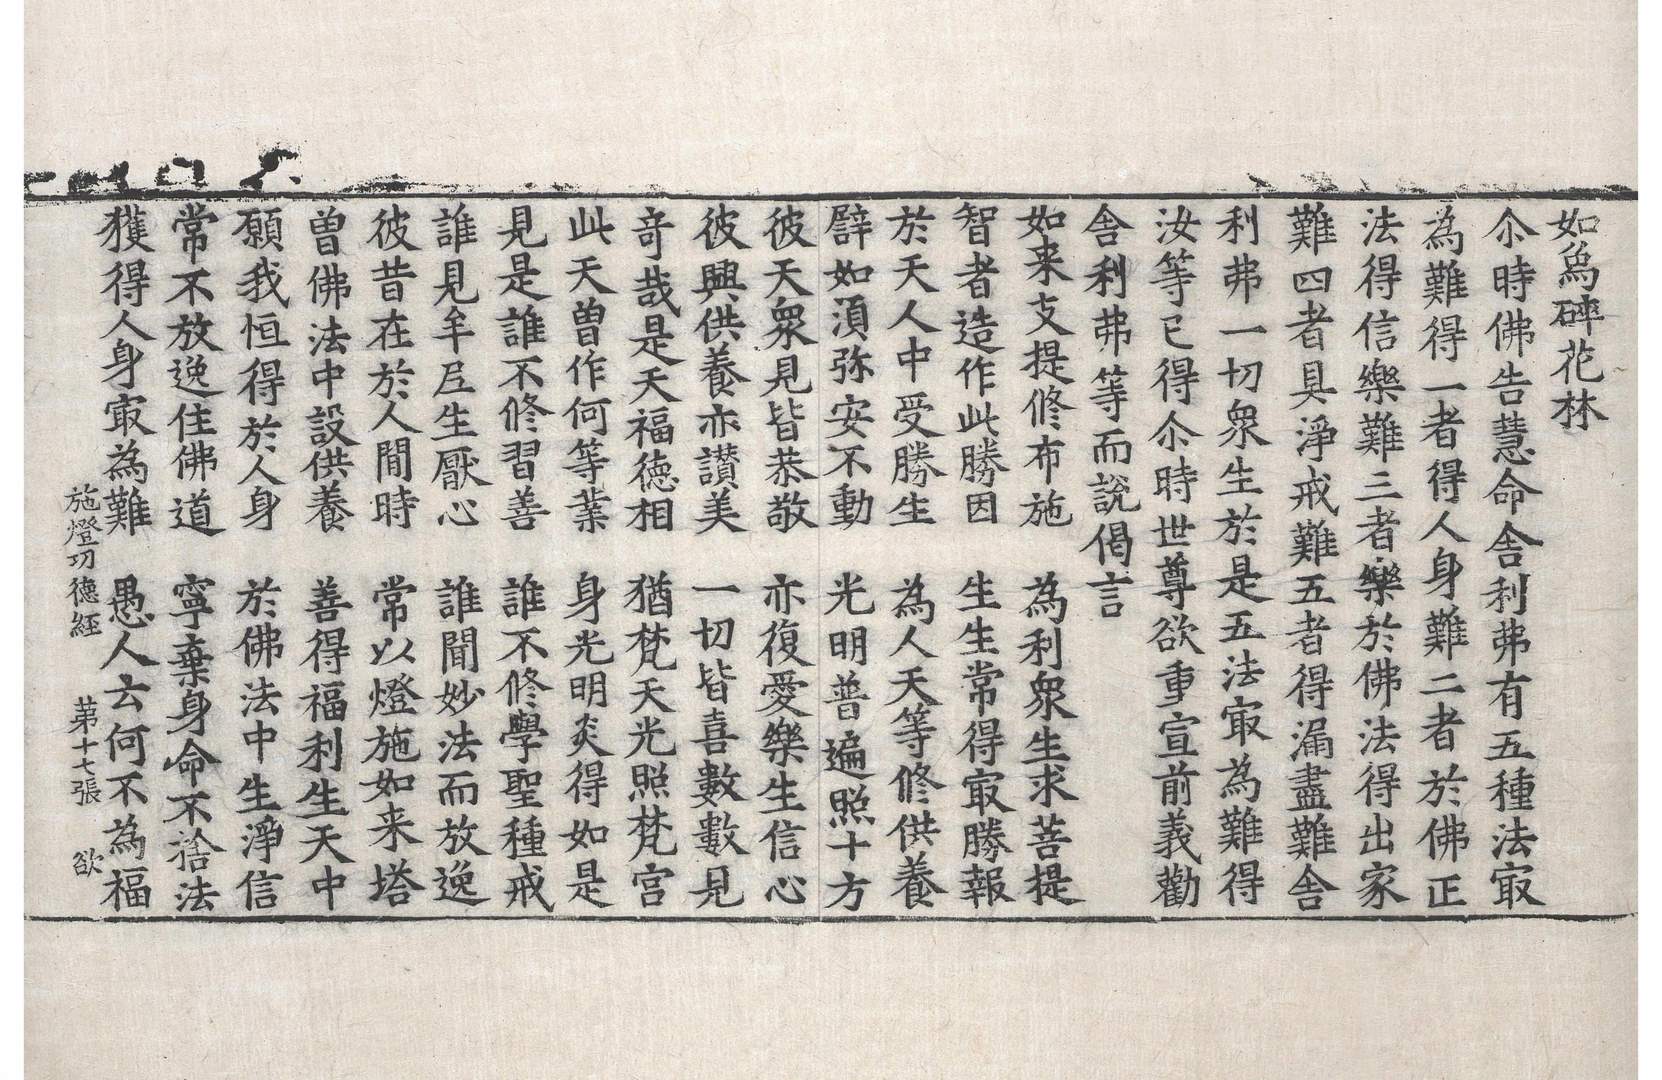 如烏碎花林
尒時佛告慧命舎利弗有五種法㝡
為難得一者得人身難二者於佛正
法得信樂難三者樂於佛法得出家
難四者具淨戒難五者得漏盡難舎
利弗一切衆生於是五法㝡為難得
汝等已得尒時世尊欲重宣前義勸
舎利弗等而說偈言
如来支提修布施　為利衆生求菩提
智者造作此勝因　生生常得㝡勝報
於天人中受勝生　為人天等修供養
譬如湏弥安不動　光明普遍照十方
彼天衆見皆恭敬　亦復愛樂生信心
彼興供養亦讃美　一切皆喜數數見
竒哉是天福德相　猶梵天光照梵宮
此天曽作何等業　身光明炎得如是
見是誰不修習善　誰不修學聖種戒
誰見牟𡰱生厭心　誰聞妙法而放逸
彼昔在於人間時　常以燈施如来塔
曽佛法中設供養　善得福利生天中
願我恒得於人身　於佛法中生淨信
常不放逸住佛道　寧棄身命不捨法
獲得人身㝡為難　愚人云何不為福
施燈功德経　苐十七張　欲